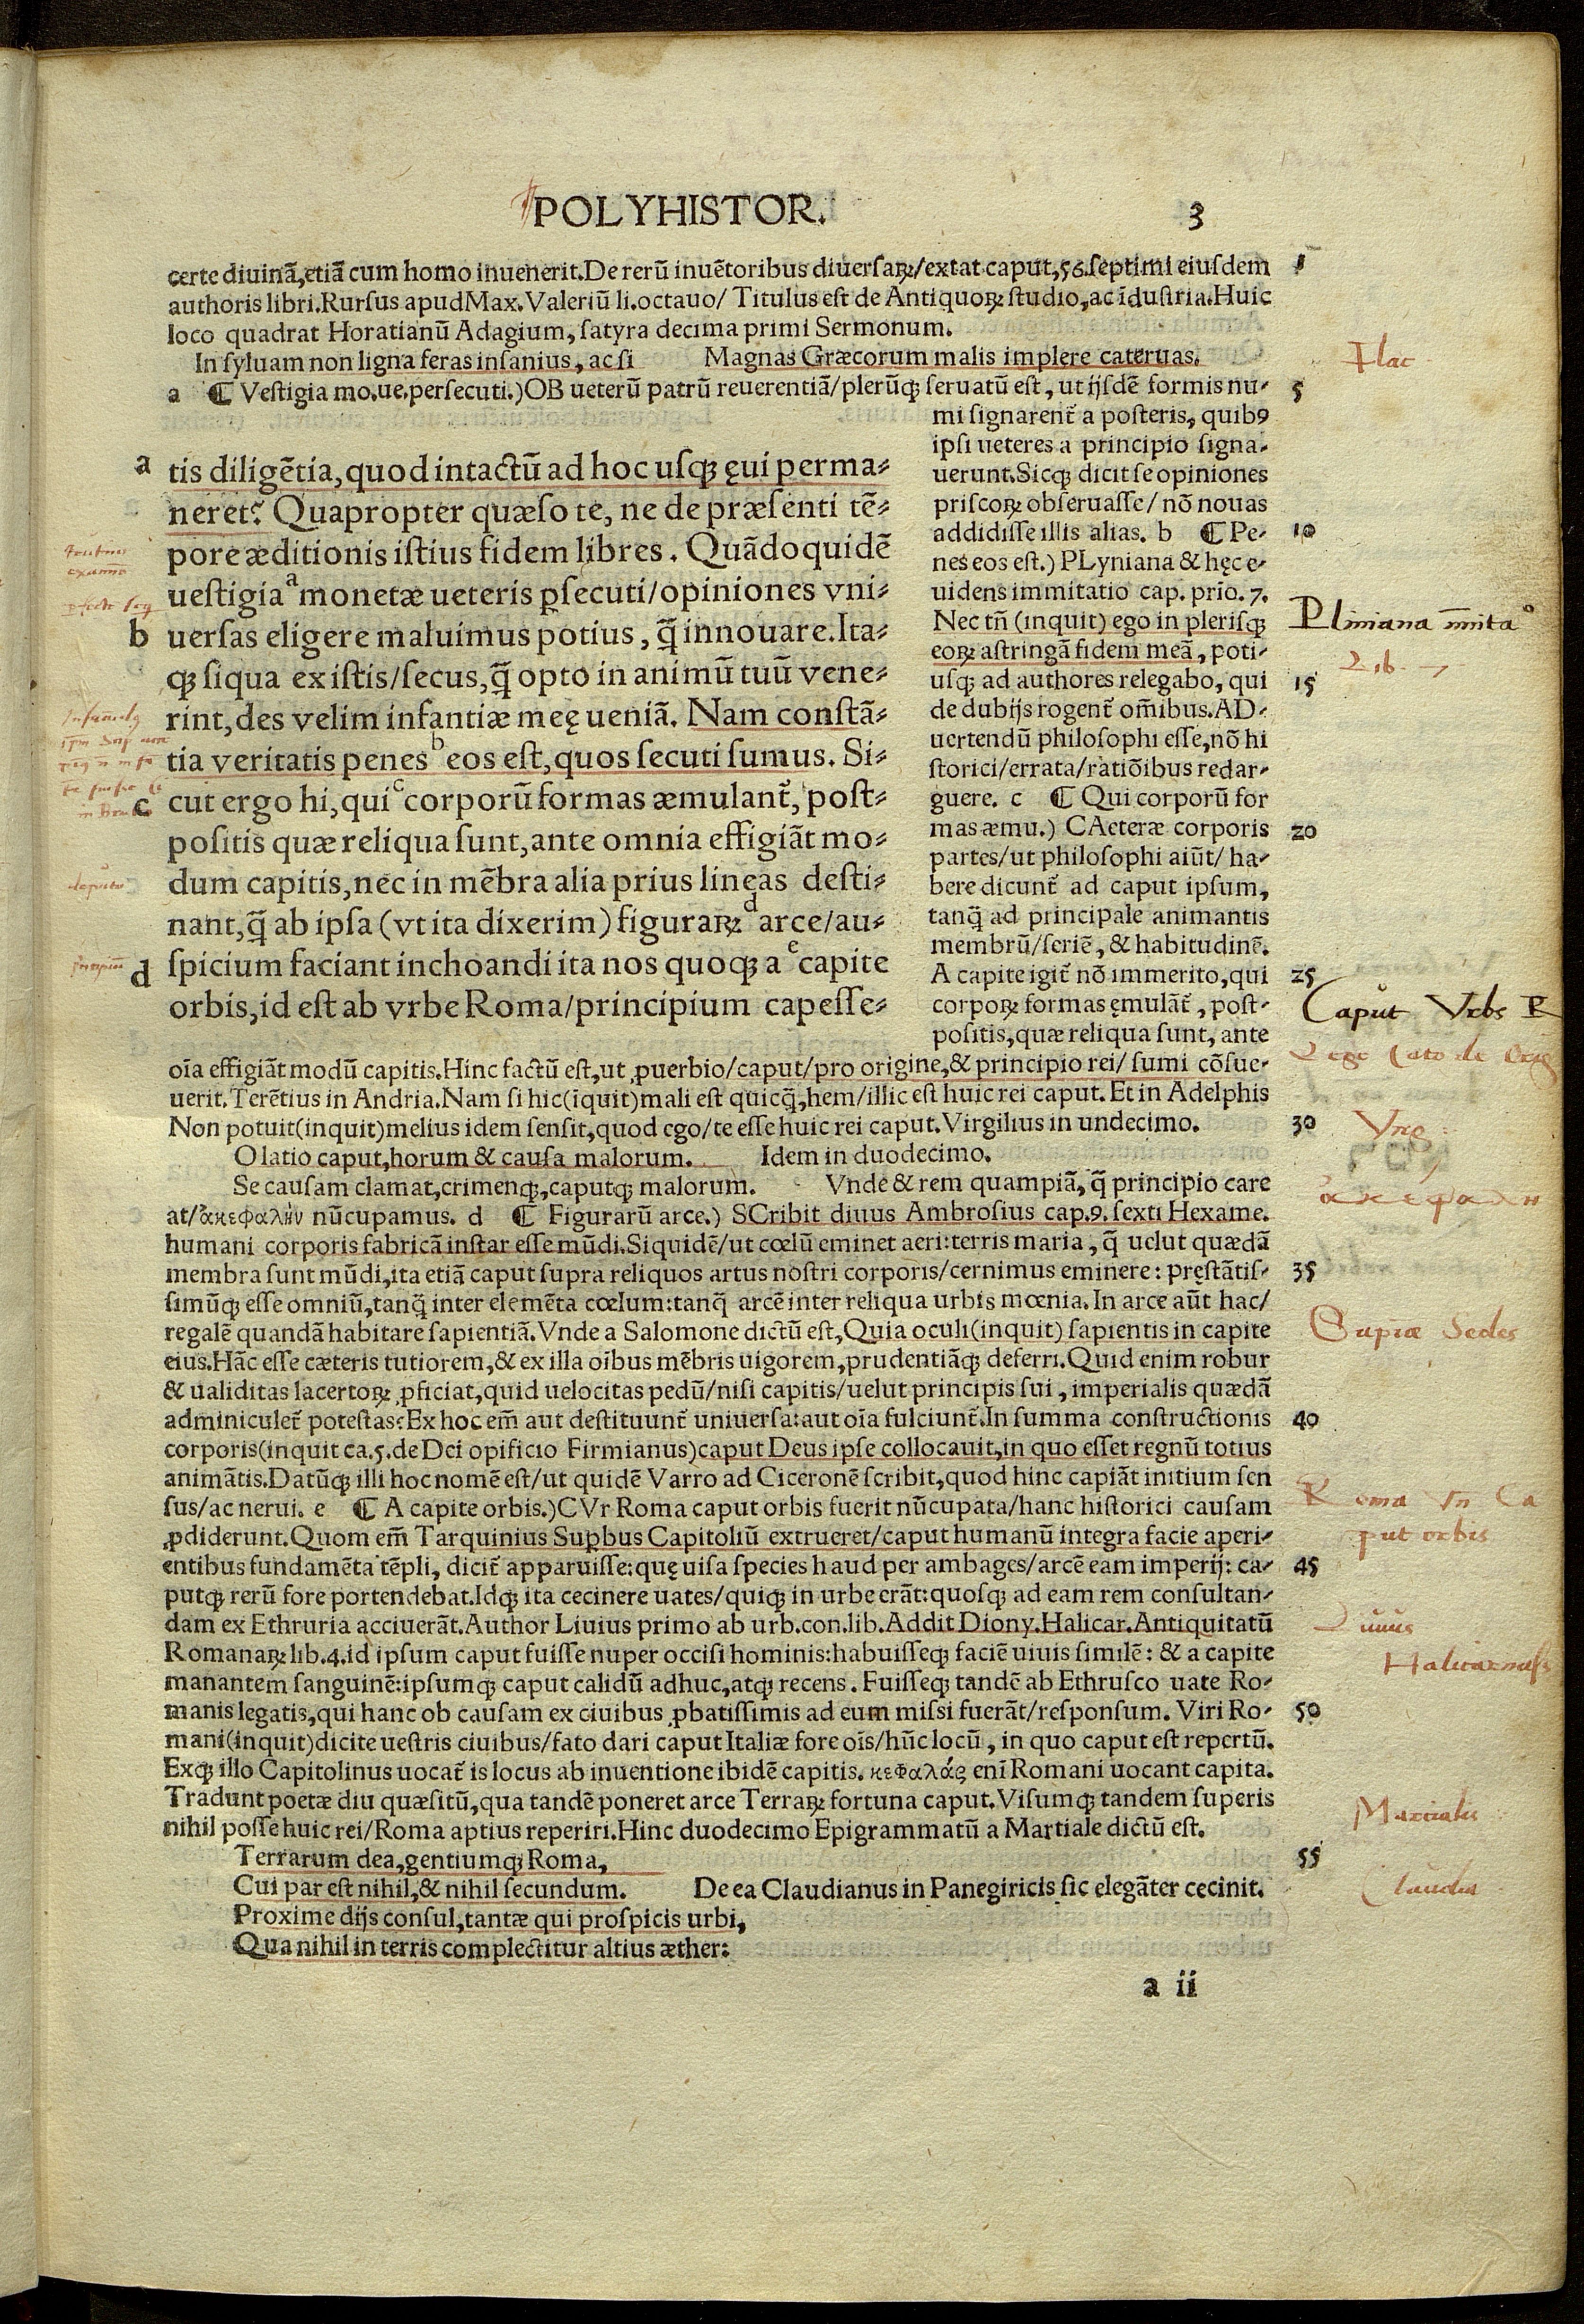 POLYHISTOR.
3
certe diuinã,etiã cum homo inuenerit.De rerũ inuẽtoribus diuersaꝝ/extat caput,56.septimi eiusdem
authoris libri.Rursus apud Max.Valeriũ li.octauo/ Titulus est de Antiquoꝝ studio,ac ĩdustria.Huic
loco quadrat Horatianũ Adagium, satyra decima primi Sermonum.
In syluam non ligna feras insanius, ac si Magnas Græcorum malis implere cateruas.
a ¶ Vestigia mo.ue.persecuti.)OB ueterũ patrũ reuerentiã/plerũqꝫ seruatũ est, ut ijsdẽ formis nu-
5
mi signarent̃ a posteris, quibꝰ
ipsi ueteres a principio signa-
uerunt.Sicqꝫ dicit se opiniones
priscoꝝ obseruasse/ nõ nouas
addidisse illis alias. b ¶ Pe-
10
nes eos est.) PLyniana & hęc e-
uidens immitatio cap. prio. 7.
Nec tñ (inquit) ego in plerisqꝫ
eoꝝ astringã fidem meã, poti-
usqꝫ ad authores relegabo, qui
15
de dubijs rogent̃ om̃ibus.AD-
uertendũ philosophi esse,nõ hi
storici/errata/ratiõibus redar-
guere. c ¶ Qui corporũ for
mas æmu.) CAeteræ corporis
20
partes/ut philosophi aiũt/ ha-
bere dicunt̃ ad caput ipsum,
tanq̃ ad principale animantis
membrũ/seriẽ, & habitudinẽ.
A capite igit̃ nõ immerito,qui
25
corpoꝝ formas ęmulãt̃, post-
positis,quæ reliqua sunt, ante
a tis diligẽtia,quod intactũ ad hoc usqꝫ ęui perma-
neret? Quapropter quæso te, ne de præsenti tẽ-
pore æditionis istius fidem libres. Quãdoquidẽ
uestigia a monetæ ueteris ꝑsecuti/opiniones vni-
b uersas eligere maluimus potius, q̃ innouare.Ita-
qꝫ siqua ex istis/secus,q̃ opto in animũ tuũ vene-
rint,des velim infantiæ meę ueniã. Nam constã-
tia veritatis penes b eos est,quos secuti sumus. Si-
c cut ergo hi,qui c corporũ formas æmulant̃, post-
positis quæ reliqua sunt,ante omnia effigiãt mo-
dum capitis,nec in mẽbra alia prius lineas desti-
nant,q̃ ab ipsa (vt ita dixerim) figuraꝝ d arce/au-
d spicium faciant inchoandi ita nos quoqꝫ a e capite
orbis,id est ab vrbe Roma/principium capesse-
oĩa effigiãt modũ capitis.Hinc factũ est,ut ꝓuerbio/caput/pro origine,& principio rei/ sumi cõsue-
uerit.Terẽtius in Andria.Nam si hic(ĩquit)mali est quicq̃,hem/illic est huic rei caput. Et in Adelphis
Non potuit(inquit)melius idem sensit,quod ego/te esse huic rei caput.Virgilius in undecimo.
30
O latio caput,horum & causa malorum. Idem in duodecimo.
Se causam clamat,crimenqꝫ,caputqꝫ malorum. Vnde & rem quampiã, q̃ principio care
at/ἀκεφαλὴν nũcupamus. d ¶ Figurarũ arce.) SCribit diuus Ambrosius cap.9.sexti Hexame.
humani corporis fabricã instar esse mũdi.Siquidẽ/ut cœlũ eminet aeri:terris maria, q̃ uelut quædã
membra sunt mũdi,ita etiã caput supra reliquos artus nostri corporis/cernimus eminere: pręstãtis-
35
simũqꝫ esse omniũ,tanq̃ inter elemẽta cœlum:tanq̃ arcẽ inter reliqua urbis mœnia.In arce aũt hac/
regalẽ quandã habitare sapientiã.Vnde a Salomone dictũ est,Quia oculi(inquit) sapientis in capite
eius.Hãc esse cæteris tutiorem,& ex illa oĩbus mẽbris uigorem,prudentiãqꝫ deferri.Quid enim robur
& ualiditas lacertoꝝ ꝓficiat,quid uelocitas pedũ/nisi capitis/uelut principis sui, imperialis quædã
adminiculet̃ potestas?Ex hoc em̃ aut destituunt̃ uniuersa:aut oĩa fulciunt̃.In summa constructionis
40
corporis(inquit ca.5.de Dei opificio Firmianus)caput Deus ipse collocauit,in quo esset regnũ totius
animãtis.Datũqꝫ illi hoc nomẽ est/ut quidẽ Varro ad Ciceronẽ scribit,quod hinc capiãt initium sen
sus/ac nerui. e ¶ A capite orbis.)CVr Roma caput orbis fuerit nũcupata/hanc historici causam
ꝓdiderunt.Quom em̃ Tarquinius Suꝑbus Capitoliũ extrueret/caput humanũ integra facie aperi-
entibus fundamẽta tẽpli, dicit̃ apparuisse:quę uisa species haud per ambages/arcẽ eam imperij: ca-
45
putqꝫ rerũ fore portendebat.Idqꝫ ita cecinere uates/quiqꝫ in urbe erãt:quosqꝫ ad eam rem consultan-
dam ex Ethruria acciuerãt.Author Liuius primo ab urb.con.lib.Addit Diony.Halicar.Antiquitatũ
Romanaꝝ lib.4.id ipsum caput fuisse nuper occisi hominis:habuisseqꝫ faciẽ uiuis similẽ: & a capite
manantem sanguinẽ:ipsumqꝫ caput calidũ adhuc,atqꝫ recens. Fuisseqꝫ tandẽ ab Ethrusco uate Ro-
manis legatis,qui hanc ob causam ex ciuibus ꝓbatissimis ad eum missi fuerãt/responsum. Viri Ro-
50
mani(inquit)dicite uestris ciuibus/fato dari caput Italiæ fore oĩs/hũc locũ, in quo caput est repertũ.
Exqꝫ illo Capitolinus uocat̃ is locus ab inuentione ibidẽ capitis. κεφαλάς enĩ Romani uocant capita.
Tradunt poetæ diu quæsitũ,qua tandẽ poneret arce Terraꝝ fortuna caput.Visumqꝫ tandem superis
nihil posse huic rei/Roma aptius reperiri.Hinc duodecimo Epigrammatũ a Martiale dictũ est.
Terrarum dea,gentiumqꝫ Roma,
55
Cui par est nihil,& nihil secundum. De ea Claudianus in Panegiricis sic elegãter cecinit.
Proxime dijs consul,tantæ qui prospicis urbi,
Qua nihil in terris complectitur altius æther:
a ii
Pliniana
Lib. 7
Caput Vrbs R
Lege Cato de
Virg
Sedes
Roma Ca
put orbis
Halicarnass
Martialis